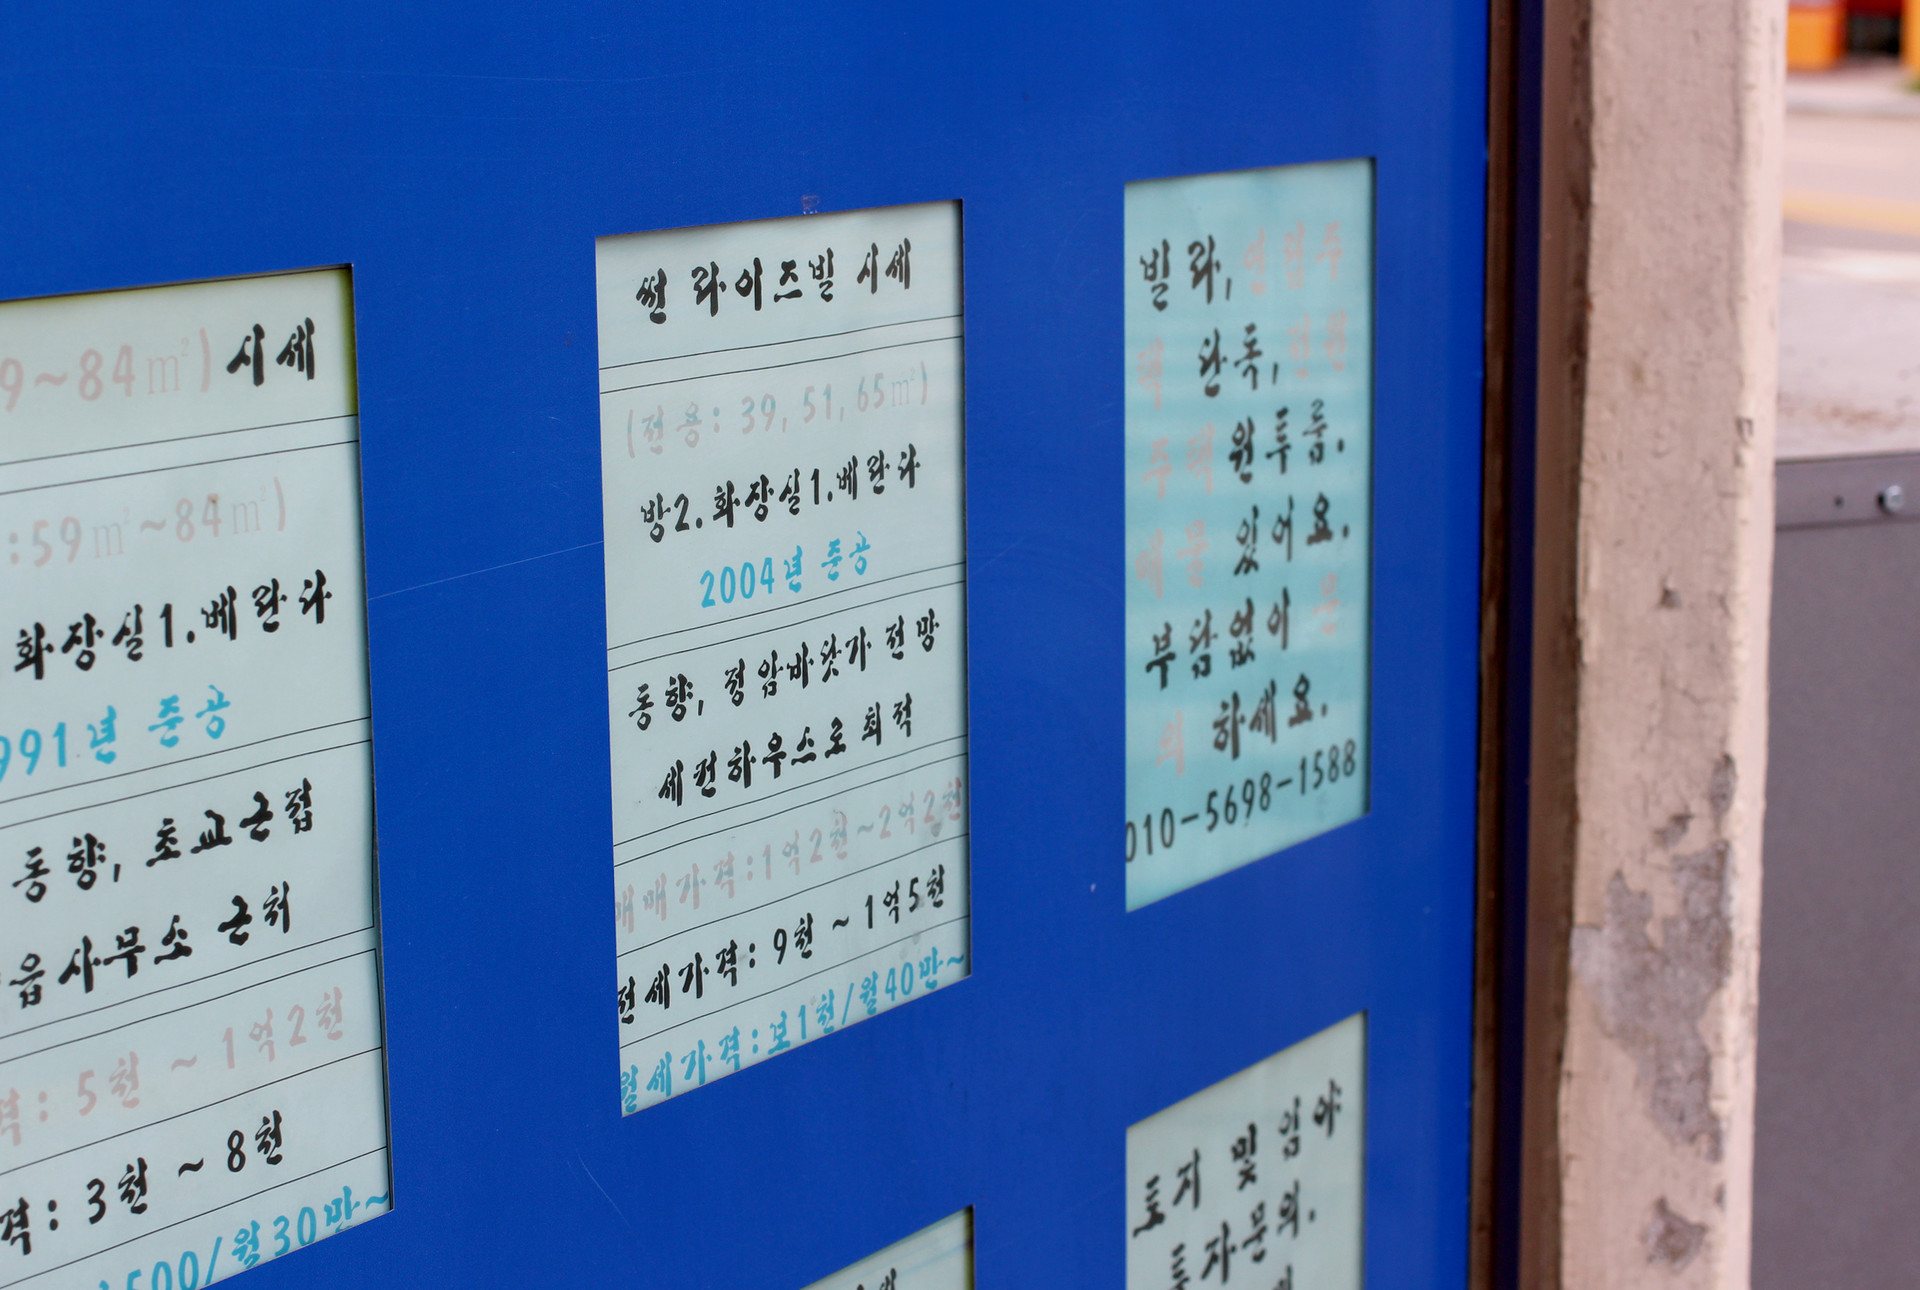 9~84㎡) 시세
:59㎡~84㎡)
화장실1.베란다
991년 준공
동향, 초교근접
읍사무소 근처
격: 5천 ~ 1억2천
격: 3천 ~ 8천
500/월30만~
썬 라이즈빌 시세
(전용: 39, 51, 65㎡)
방2.화장실1.베란다
2004년 준공
동향, 정암바닷가 전망
세컨하우스로 최적
매매가격:1억2천~2억2천
전세가격: 9천 ~ 1억5천
월세가격:보1천/월40만~
빌라, 연립주
택 단독, 전원
주택 원투룸.
매물 있어요.
부담없이 문
의 하세요.
010-5698-1588
토지 및 임야
투자문의.